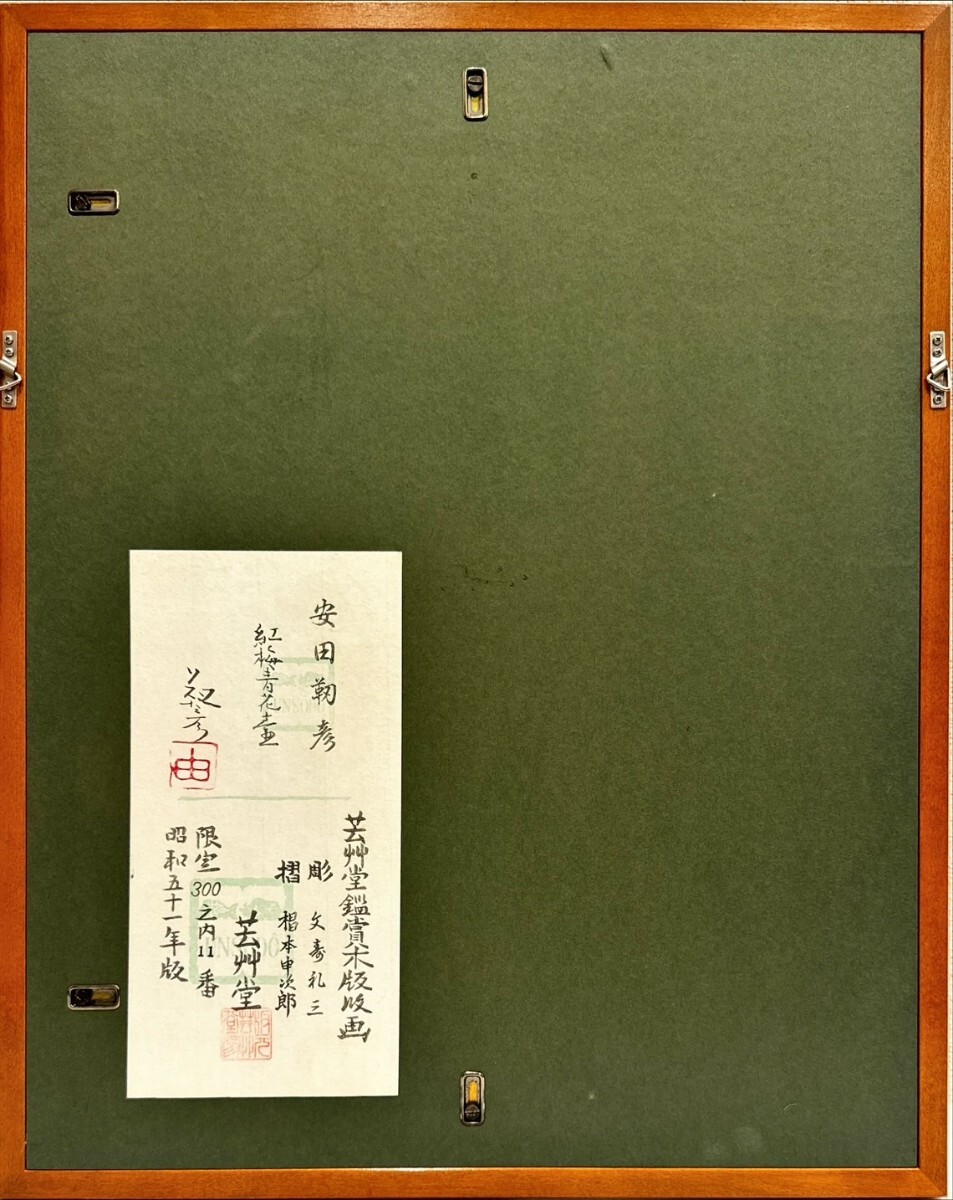 安田靫彦
紅梅青花壷
靫彦
由
芸艸堂鑑賞木版画
彫 文寿礼三
摺 椙本申次郎
芸艸堂
限定300之内11番
昭和五十一年版